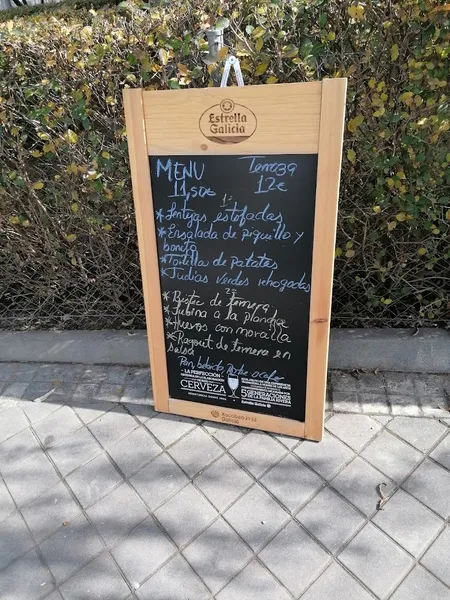 Estrella
Galicia
MENU Terraza
11,50€ 12€
1º
* Lentejas estofadas
* Ensalada de piquillo y
bonito
* Tortilla de patatas
* Judias verdes rehogadas
2º
* Bistec de ternera
* Lubina a la plancha
* Huevos con morcilla
* Ragout de ternera en
salsa
Pan, bebida, Postre o cafe
LA PERFECCIÓN
CERVEZA
5 GENERACIONES